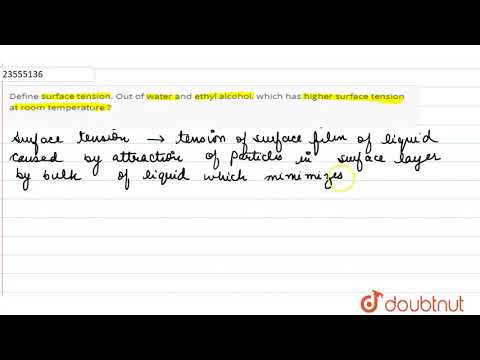 23555136
Define surface tension. Out of water and ethyl alcohol, which has higher surface tension
at room temperature ?
Surface tension → tension of surface film of liquid
caused by attraction of particles in surface layer
by bulk of liquid which minimizes
doubtnut